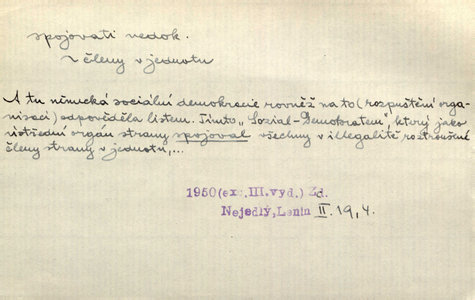 spojovati nedok.
~ členy v jednotu
A tu německá sociální demokracie rovněž na to (rozpuštění orga-
nisací) odpověděla listem. Tímto „Sozial-Demokratem", který jako
ústřední orgán strany spojoval všechny v illegalitě roztroušené
členy strany v jednotu,...
1950 (ex. III. vyd.) Zd.
Nejedlý, Lenin II. 19, 4.